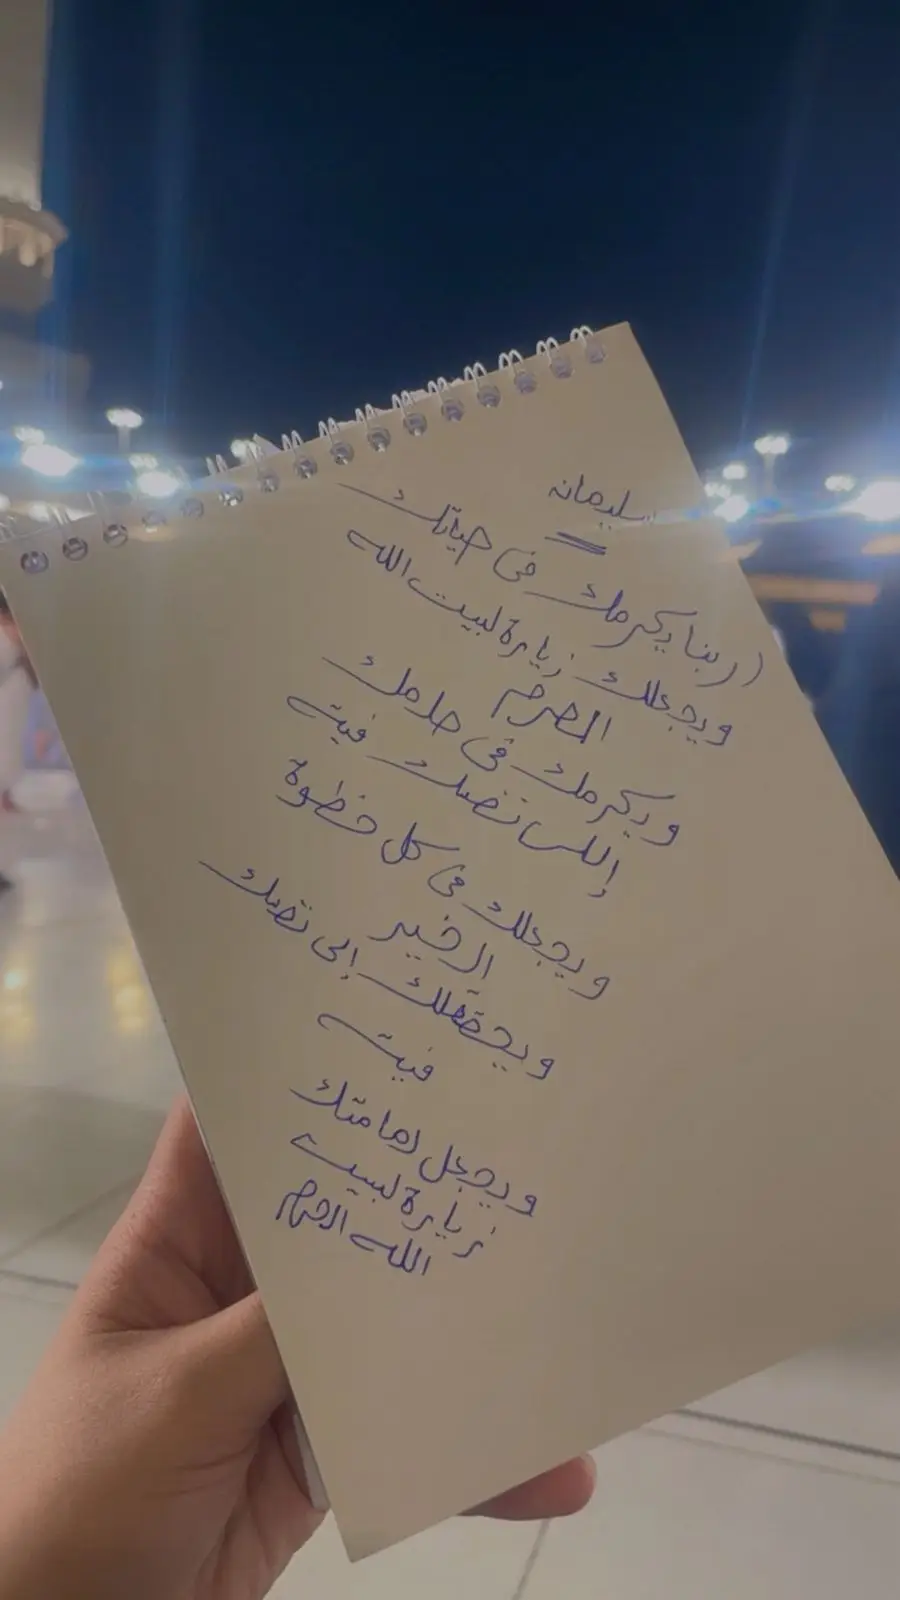 سليمان
((ربنا يكرمك في حياتك
ويجعلك زيارة لبيت الله
المحرم
ويكرمك في حلامك
إللي نفسك فيت
ويجعلك في كل خطوة
الخير
ويحققلك إلى نفسك
فيت
ويجعل
زيارة لبيت
الله الحرام